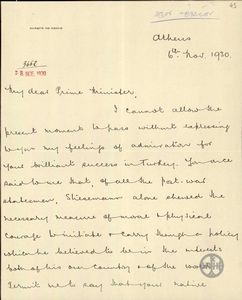 45
3662
28 ΝΟΕ. 1930
Athens
6th Nov. 1930.
My dear Prime Minister,
I cannot allow the
present moment to pass without expressing
to you my feelings of admiration for
your brilliant success in Turkey. You once
said to me that, of all the post-war
statesmen, Stresemann alone showed the
necessary measure of moral & physical
courage to initiate & carry through a policy
which he believed to be in the interests
both of his own country & of the world.
Permit me to say that your native